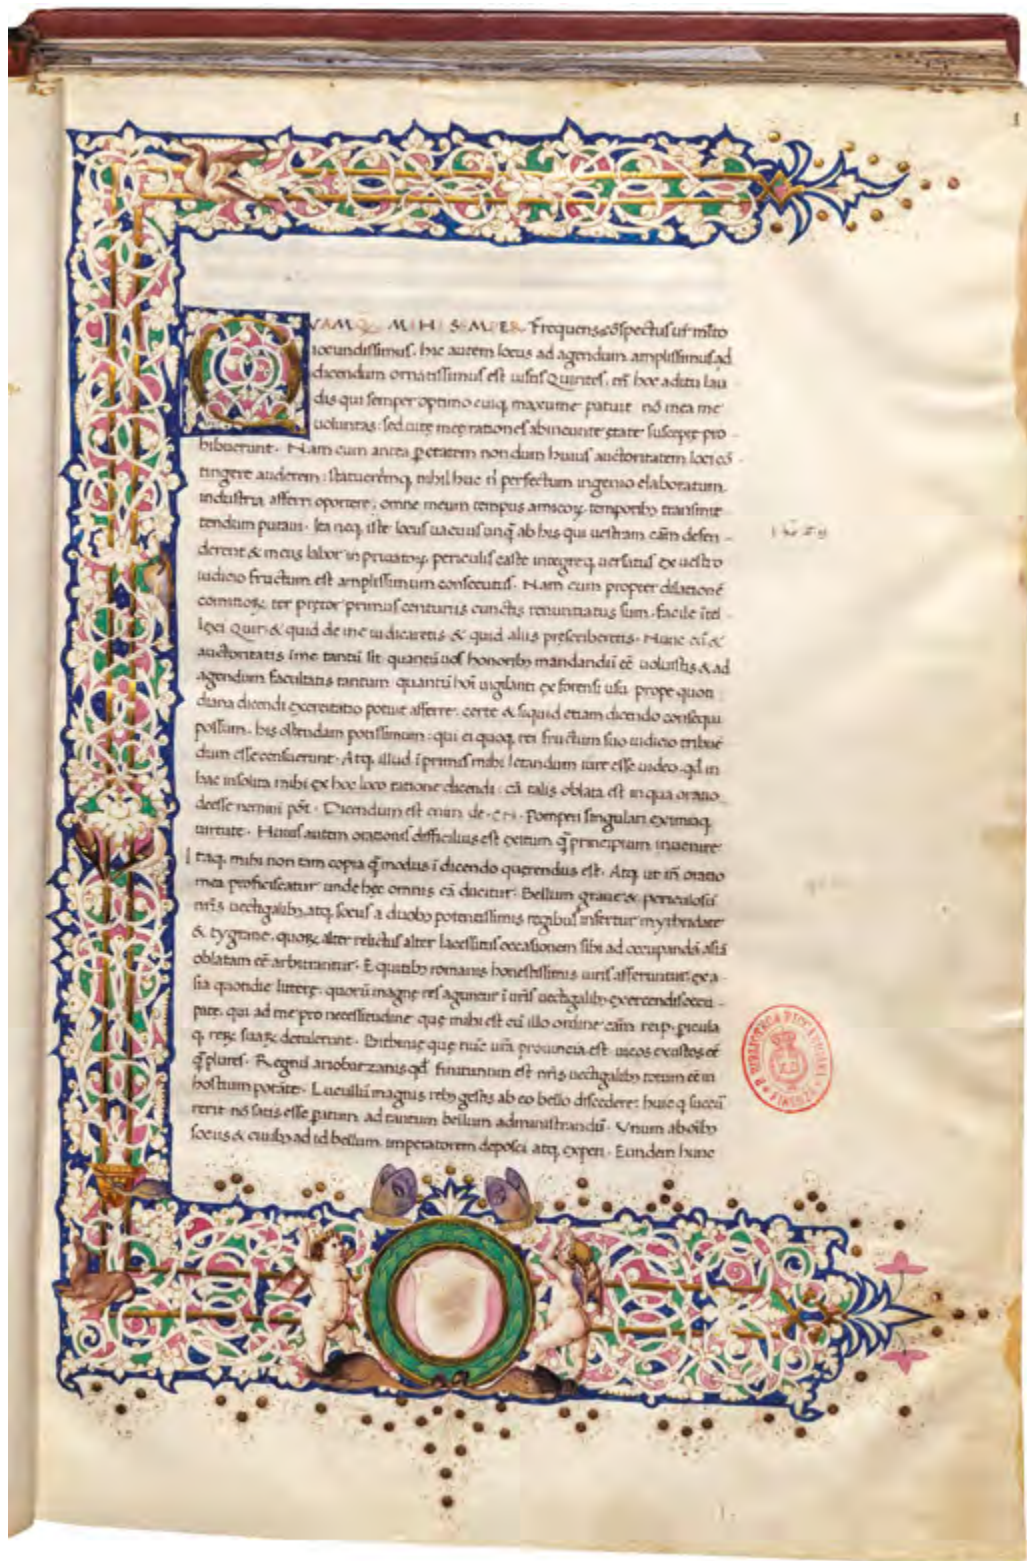 1
QVAMQ MIHI SEMPER Frequens cōspectus ur̄ mlto
iocundissimus. hic autem locus ad agendum amplissimus ad
dicendum ornatissimus est uisus Quirites. tn̄ hoc aditu lau
dis qui semper optimo cuiq; maxume patuit nō mea me
uoluntas: sed uitę meę rationes ab ineunte ętate susceptę pro-
hibuerunt. Nam cum antea ꝑ ętatem nondum huius auctoritatem loci cō-
tingere auderem: statueremq; nihil huc ni perfectum ingenio elaboratum
industria afferri oportere: omne meum tempus amicoꝝ temporibꝫ transmit
tendum putaui. Ita neq; iste locus uacuus unq̄ ab his qui uestram cām defen-
derent & meus labor in priuatoꝝ periculis caste integreq; uersatus ex uestro
iudicio fructum est amplissimum consecutus. Nam cum propter dilationē
comitioꝝ ter pretor primus centuriis cunctis renuntiatus sum. facile ītel-
lexi Quir. & quid de me iudicaretis & quid aliis prescriberetis. Nunc cū &
auctoritatis ī me tantū sit quantū uos honoribꝫ mandandis eē uoluistis & ad
agendum facultatis tantum quantū hoī uigilanti ex forensi usu prope quoti
diana dicendi exercitatio potuit afferre: certe & siquid etiam dicendo consequi
possum. his ostendam potissimum: qui ei quoq; rei fructum suo iudicio tribuē
dum esse censuerunt. Atq; illud ī primis mihi letandum iure esse uideo. qd̄ in
hac insolita mihi ex hoc loco ratione dicendi: cā talis oblata est in qua oratio
deesse nemini pōt. Dicendum est enim de CN. Pompeii singulari eximiaq;
uirtute. Huius autem orationis difficilius est exitum q̄ principium inuenire
Itaq; mihi non tam copia q̄ modus ī dicendo querendus est. Atq; ut īn oratio
mea proficiscatur unde hec omnis cā ducitur: Bellum graue & periculosū
nr̄is uectigalibꝫ atq; sociis a duobꝫ potentissimis regibus infertur mythridate
& tygrane. quoꝝ alter relictus alter lacessitus occasionem sibi ad occupandā asiā
oblatam eē arbitrantur. Equitibꝫ romanis honestissimis uiris afferuntur ex a-
sia quotidie litterę: quorū magnę res aguntur ī ur̄is uectigalibꝫ exercendis occu-
patę. qui ad me pro necessitudine quę mihi est cū illo ordine cām reip. picula
q; reꝝ suaꝝ detulerunt. Bithinię quę nūc ur̄a prouincia est uicos exustos eē
q̄plures. Regnū ariobarzanis qd̄ finitimum est nr̄is uectigalibꝫ totum eē in
hostium potāte. Lucullū magnis rebꝫ gestis ab eo bello discedere: huic q succes
serit nō satis esse ꝑatum ad tantum bellum administrandū. Vnum ab oībꝫ
sociis & ciuibꝫ ad id bellum imperatorem deposci atq; expeti. Eundem hunc
R. BIBLIOTECA RICCARDIANA
FIRENZE